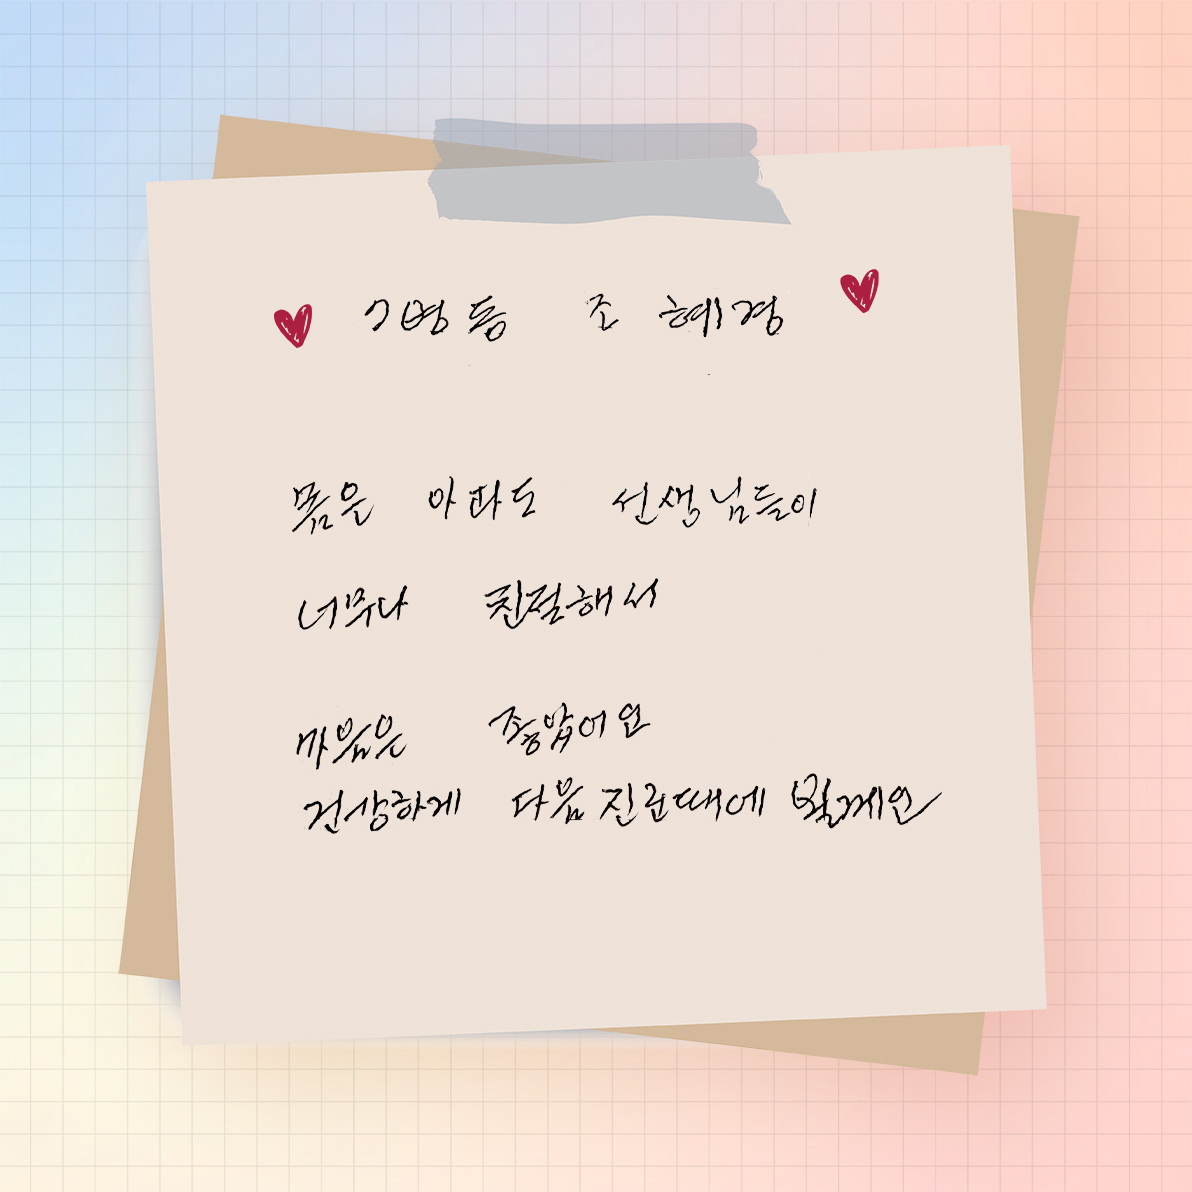 7병동 조 혜경
몸은 아파도 선생님들이
너무나 친절해서
마음은 좋았어요
건상하게 다음 진료때에 뵐게요